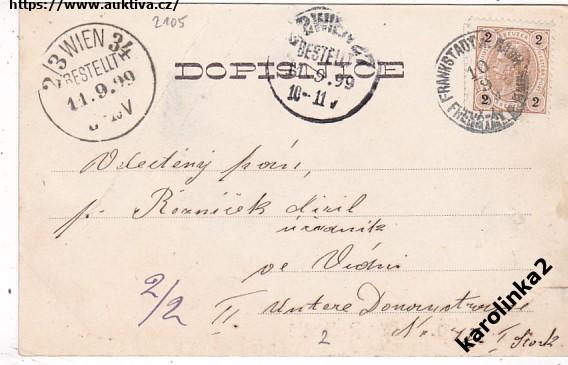 https://www.auktiva.cz/
2105
2/3 WIEN 34
BESTELLT
11.9.99
V
BESTELLT
11.9.99
10-11 V
DOPISNICE
FRANKSTADT
10
2 2
2 2
Velectěný pán,
p. Rozníček
úředník
ve Vídni
2/2
II Untere Donaustrasse
No. I Stock
2
karolinka2